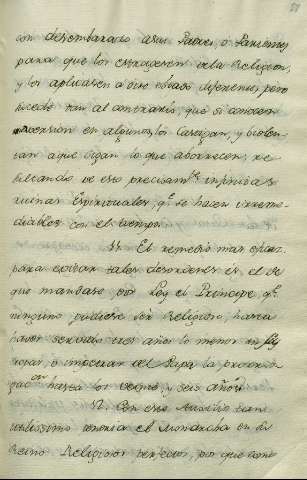 con desembarazo a sus Padres, o Parientes
para que los extragesen de la Religion,
y los aplicasen a otro estado diferente, pero
sucede tan al contrario, que si conocen
aversion en algunos, los castigan, y violen
tan a que sigan lo que aborrecen, re
sultando de eso precisam.te infinidas
ruinas Espirituales, q.e se hacen irreme
diables con el tiempo.
El remedio mas eficaz
para evitar tales desordenes es, el de
que mandase por Ley el Principe q.e
ninguno pudiese ser Religioso, hasta
haver servido tres años lo menos en
o impetrar del Papa la prorroga
hasta los veinte, y seis años.
Con este Auxilio tan
utilissimo tendria el Monarcha en su
Reino Religiosos perfectos, por que como